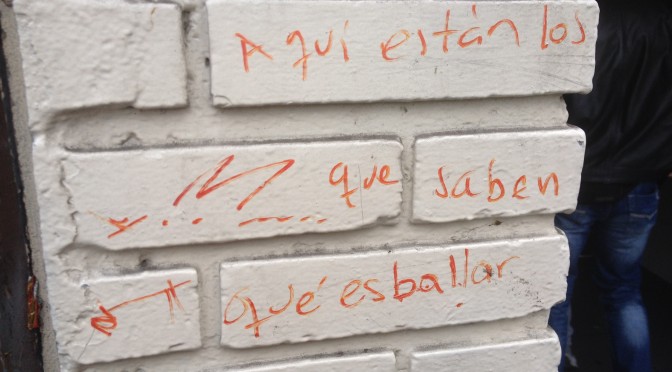 Aquí están los
que saben
qué es ballar